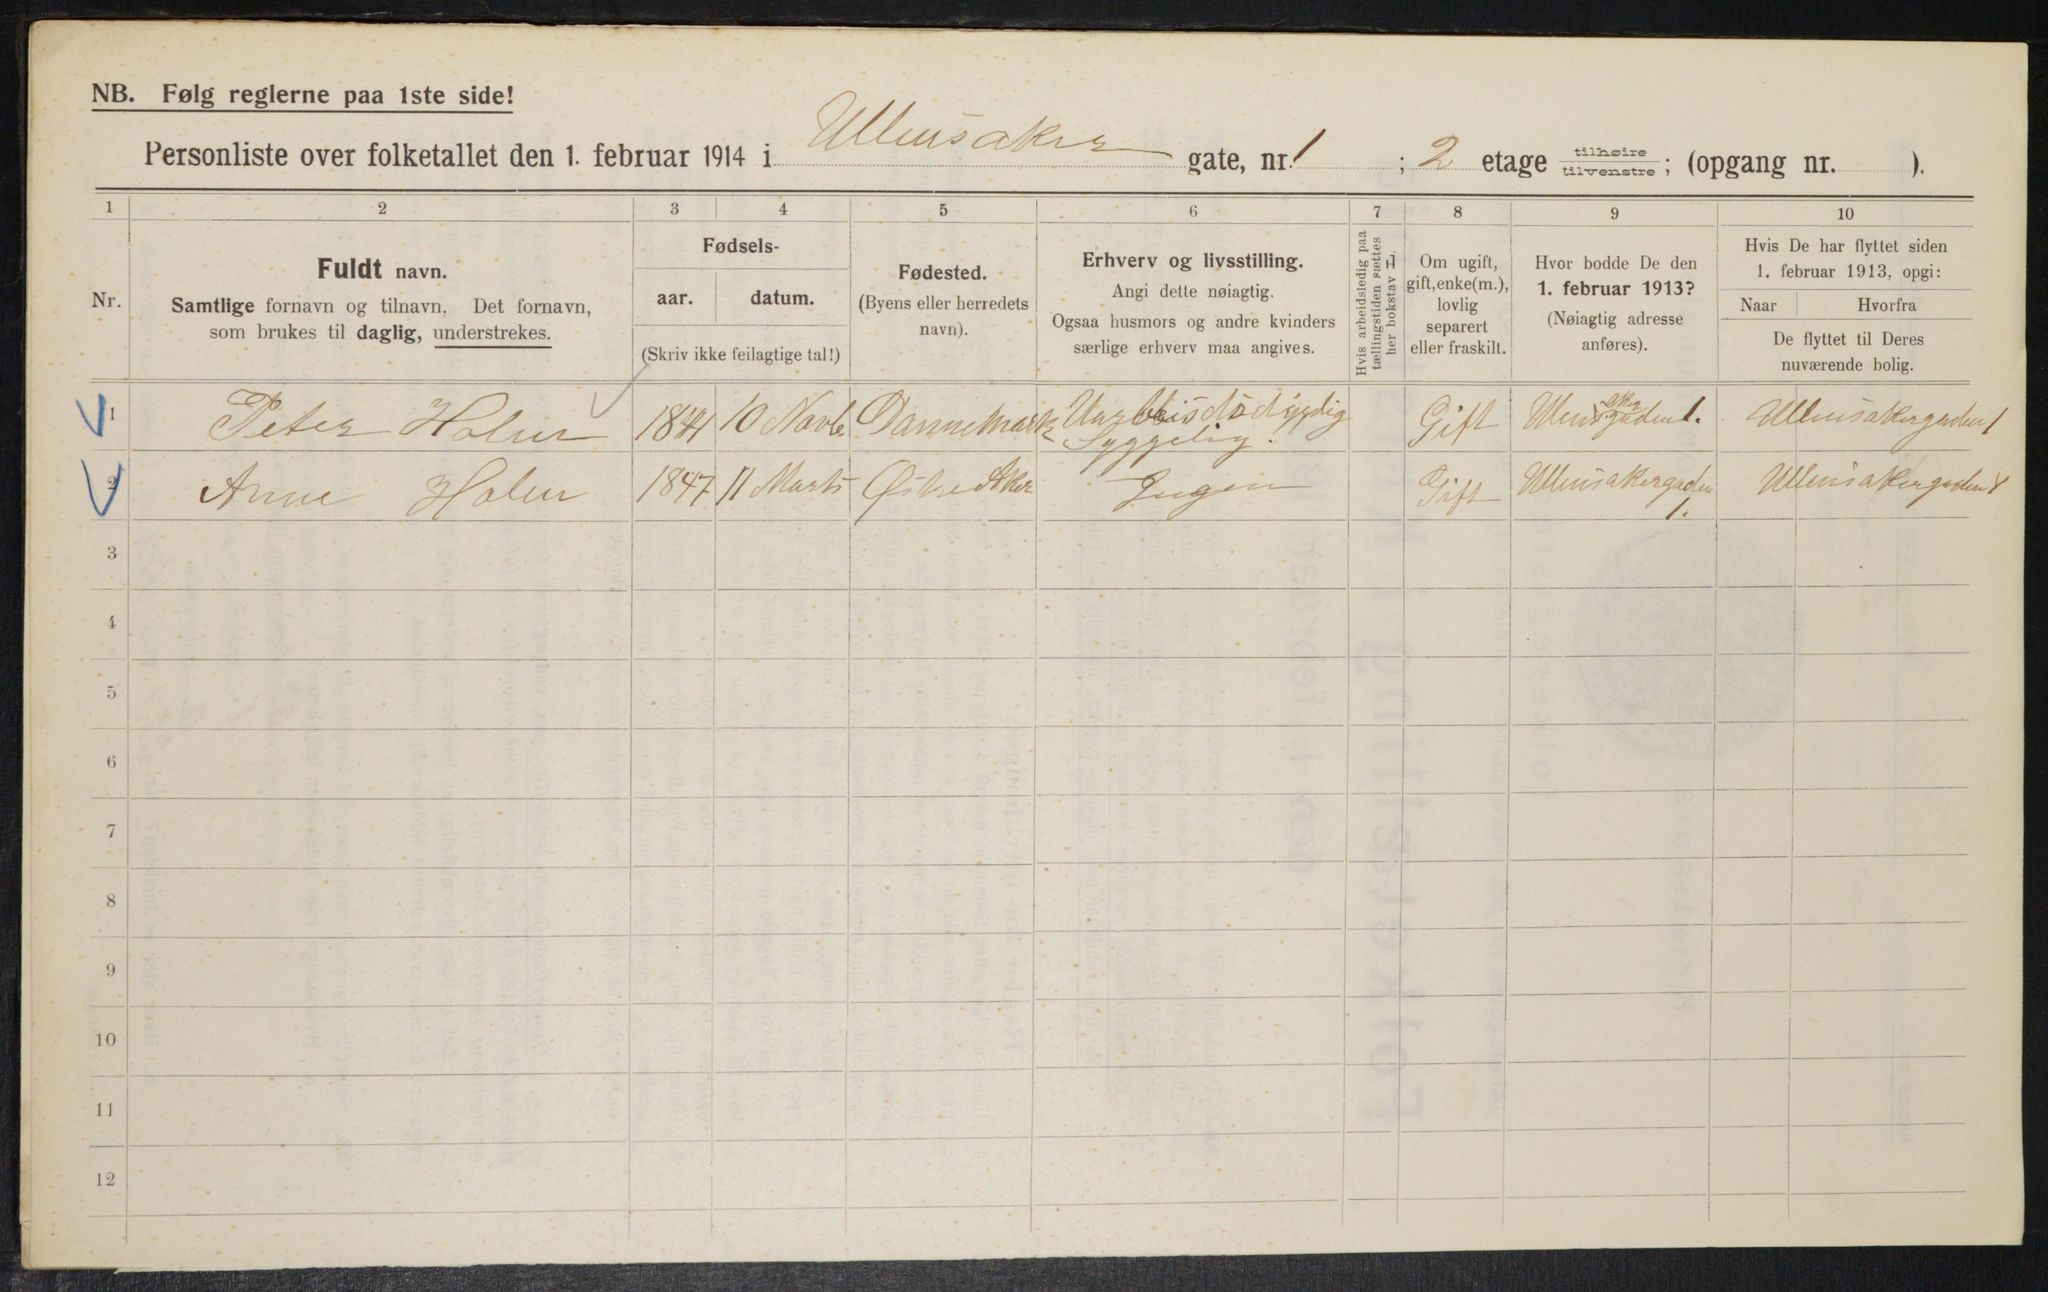 NB. Følg reglerne paa 1ste side!
Personliste over folketallet den 1. februar 1914 i Ullensaker gate, nr. 1 ; 2 etage tilhøire / tilvenstre ; (opgang nr. ).
1 2 3 4 5 6 7 8 9 10
Nr.
Fuldt navn.
Samtlige fornavn og tilnavn. Det fornavn,
som brukes til daglig, understrekes.
Fødsels-
aar. datum.
(Skriv ikke feilagtige tal!)
Fødested.
(Byens eller herredets
navn).
Erhverv og livsstilling.
Angi dette nøiagtig.
Ogsaa husmors og andre kvinders
særlige erhverv maa angives.
Hvis arbeidsledig paa
tællingstiden sættes
her bokstav L.
Om ugift,
gift, enke(m.),
lovlig
separert
eller fraskilt.
Hvor bodde De den
1. februar 1913?
(Nøiagtig adresse
anføres).
Hvis De har flyttet siden
1. februar 1913, opgi:
Naar Hvorfra
De flyttet til Deres
nuværende bolig.
1 Peter Holm 1841 10 Novb Dannemark Gift Ullensakergaden 1. Ullensakergaden 1
Syggelig.
2 Anne Holm 1847 11 Marts Østre Aker Ingen Gift Ullensakergaden 1. Ullensakergaden 1
3
4
5
6
7
8
9
10
11
12